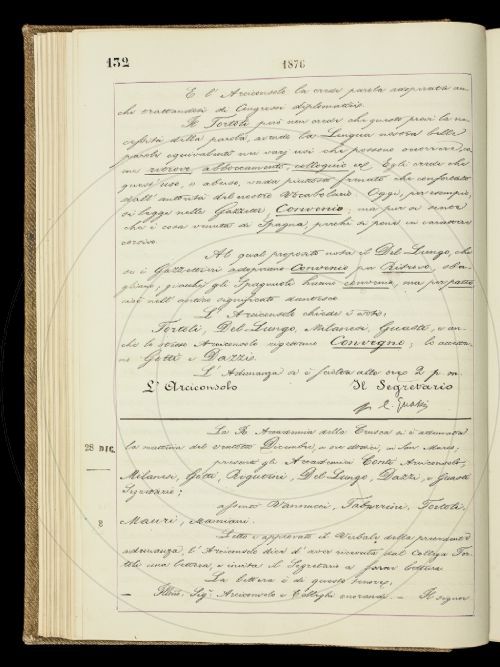 132
1876
E l'Arciconsolo la crede parola adoprata an-
che trattandosi di Congressi diplomatici.
Il Tortoli però non crede che questo provi la ne-
cessità della parola, avendo la Lingua nostra belle
parole equivalenti ne' varj usi che possono occorrere, co-
me ritrovo, abboccamento, colloquio ec. Egli crede che
quest'uso, o abuso, vada piuttosto frenato che confortato
dall'autorità del nostro Vocabolario. Oggi, per esempio,
si legge nelle Gazzette, Convenio, ma pur si sente
che è cosa venuta di Spagna, perchè si pone in carattere
corsivo.
Al qual proposito nota il Del-Lungo, che
se i Gazzettieri adoprano Convenio per Ritrovo, sba-
gliano; giacchè gli Spagnuoli hanno convenio, ma per patto
L'Arciconsolo chiede i voti:
Tortoli, Del-Lungo, Milanesi, Guasti, e an-
che lo stesso Arciconsolo rigettano Convegno; lo accetta-
no Gotti e Dazzi.
L'Adunanza si è sciolta alle ore 2 p. m.
L'Arciconsolo Il Segretario
C. Guasti
La R. Accademia della Crusca si è adunata
28 DIC.
la mattina del ventotto Dicembre, a ore dodici, in San Marco;
presenti gli Accademici Conti Arciconsolo,
Milanesi, Gotti, Rigutini, Del-Lungo, Dazzi, e Guasti
Segretario;
assenti Vannucci, Tabarrini, Tortoli,
8
Mauri, Mamiani.
Letto e approvato il Verbale della precedente
adunanza, l'Arciconsolo dice d'aver ricevuta dal Collega Tor-
toli una lettera, e invita il Segretario a farne lettura.
La lettera è di questo tenore:
— Illmo. Sigr. Arciconsolo e Colleghi onorandi. — Il signor